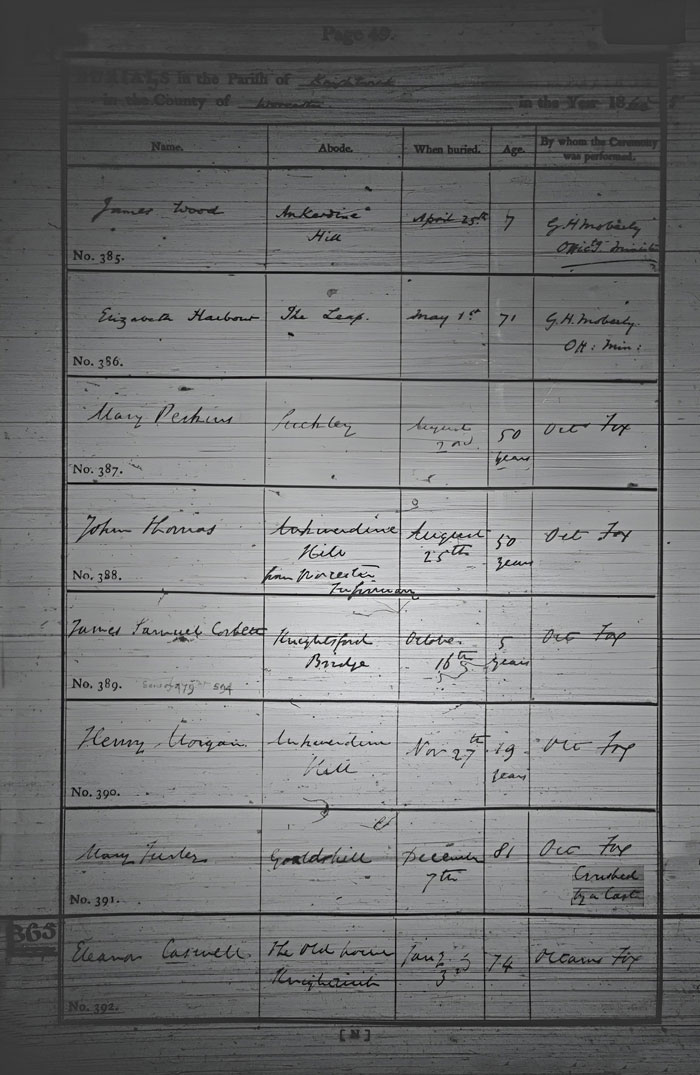 Page 49.
BURIALS in the Parish of Knightwick
in the County of Worcester in the Year 18
Name. Abode. When buried. Age. By whom the Ceremony was performed.
James Wood Ankerdine Hill April 25th 7 G.H. Moberly Offic'g Minister
No. 385.
Elizabeth Harbour The Leap. May 1st 71 G.H. Moberly. Off: Min:
No. 386.
Mary Perkins Suckley August 2nd 50 years Oct Fox
No. 387.
John Thomas Ankwerdine Hill from Worcester Infirmary August 25th 50 years Oct Fox
No. 388.
James Samuel Corbett Knightsford Bridge October 16th 5 years Oct Fox
No. 389. 594
Henry Morgan Ankwerdine Hill Nov 27th 19 years Oct Fox
No. 390.
Mary Turley December 7th 81 Oct Fox
Crushed by a Cart
No. 391.
365
Eleanor Caswell The Old house Knightwick Jan 3rd 74 Octavius Fox
No. 392.
[N]